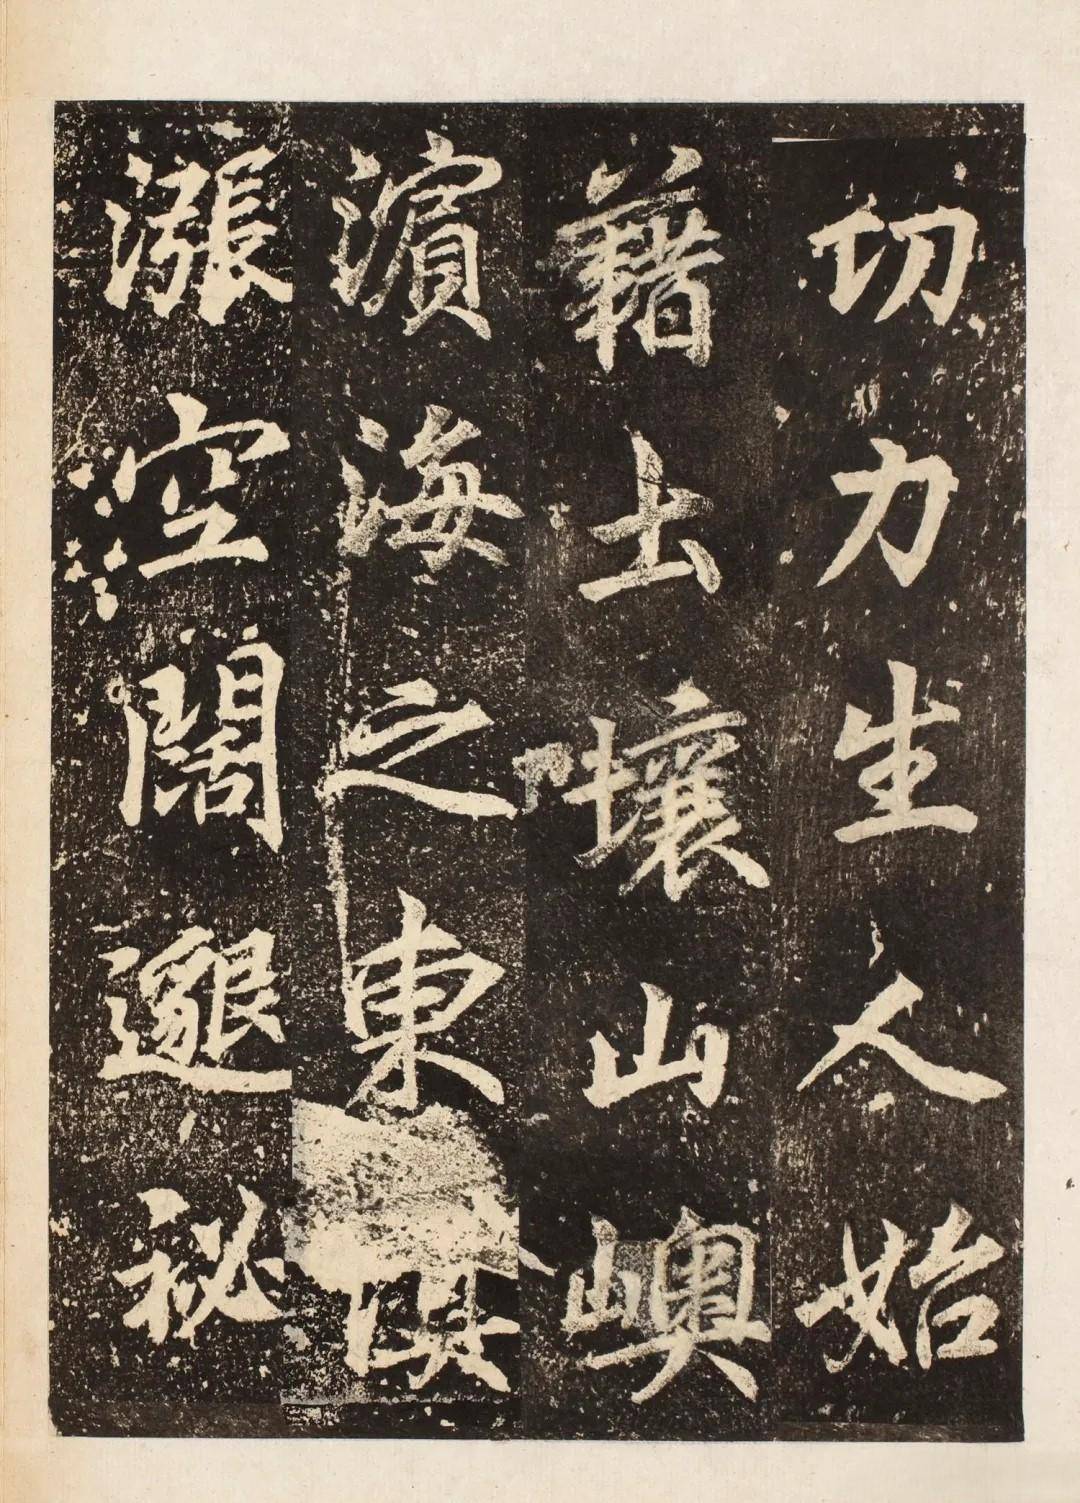 功力生人始
藉土壤山嶼
濱海之東
漲空闊邈祕